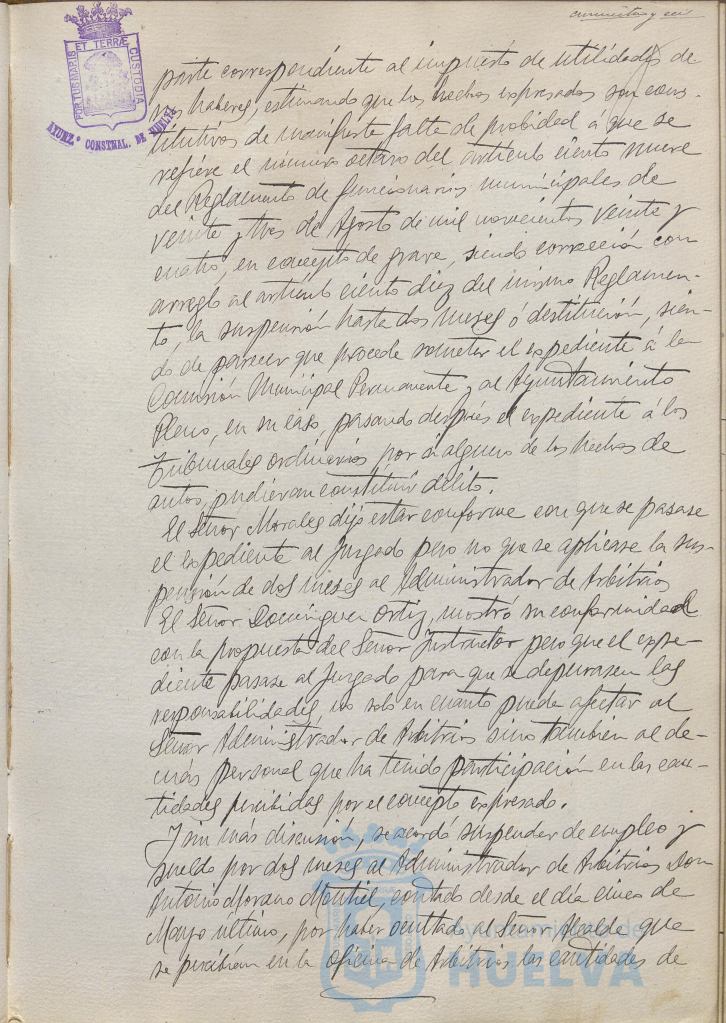 cincuenta y seis
PORTUS MARIS ET TERRÆ CUSTODIA
AYUNT.º CONSTNAL. DE HUELVA
parte correspondiente al impuesto de utilidades de
sus haberes, estimando que los hechos expresados son cons-
titutivos de manifiesta falta de probidad á que se
refiere el número octavo del artículo ciento nueve
del Reglamento de funcionarios municipales de
veinte y tres de Agosto de mil novecientos veinte y
cuatro, en concepto de grave, siendo corrección con
arreglo al artículo ciento diez del mismo Reglamen-
to, la suspensión hasta dos meses ó destitución, sien-
do de parecer que procede someter el expediente á la
Comisión Municipal Permanente y al Ayuntamiento
Pleno, en su caso, pasando después el expediente á los
Tribunales ordinarios por si alguno de los hechos de
autos, pudieran constituir delito.
El Señor Morales dijo estar conforme con que se pasase
el expediente al Juzgado pero no que se aplicase la sus-
pensión de dos meses al Administrador de Arbitrios
El Señor Dominguez Ortiz, mostró su conformidad
con la propuesta del Señor Instructor pero que el expe-
diente pasase al Juzgado para que se depurasen las
responsabilidades, no solo en cuanto puede afectar al
Señor Administrador de Arbitrios sino también al de-
más personal que ha tenido participación en las can-
tidades percibidas por el concepto expresado.
Y sin más discusión, se acordó suspender de empleo y
sueldo por dos meses al Administrador de Arbitrios Don
Antonio Moreno Montiel, contado desde el día cinco de
Mayo último, por haber ocultado al Señor Alcalde que
se percibían en la oficina de Arbitrios las cantidades de
Ayuntamiento de
HUELVA